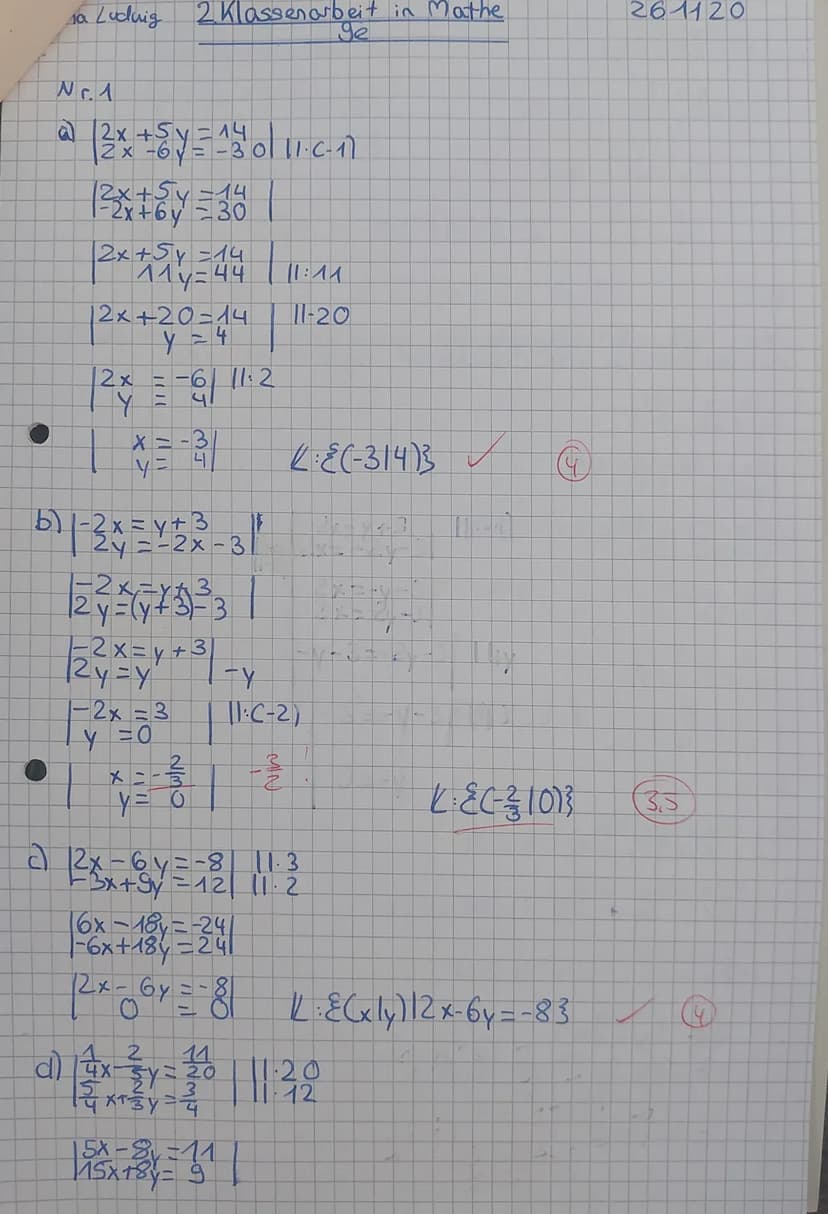 Ludwig 2 Klassenarbeit in Mathe 261120
ge
Nr. 1
a) |2x + 5y = 14
|2x - 6y = -30| II·(-1)
|2x + 5y = 14|
|-2x + 6y = 30|
|2x + 5y = 14|
11y = 44| II:11
|2x + 20 = 14| II-20
y = 4|
|2x = -6| II:2
|y = 4|
|x = -3|
|y = 4| L:{(-3|4)} ✓ 4
b) |-2x = y + 3|
|2y = -2x - 3|
|-2x = y + 3|
|2y = (y + 3) - 3|
|-2x = y + 3|
|2y = y| -y
|-2x = 3| II:(-2)
|y = 0|
|x = -2/3| -3/2 !
|y = 0| L:{(-2/3|0)} 3,5
c) |2x - 6y = -8| II·3
|-3x + 9y = 12| II·2
|6x - 18y = -24|
|-6x + 18y = 24|
|2x - 6y = -8|
|0 = 0| L:{(x|y)|2x-6y=-8} ✓ 4
d) |1/4x - 2/5y = 11/20| II·20
|5/4x + 2/3y = 3/4| II·12
|5x - 8y = 11|
|15x + 8y = 9|